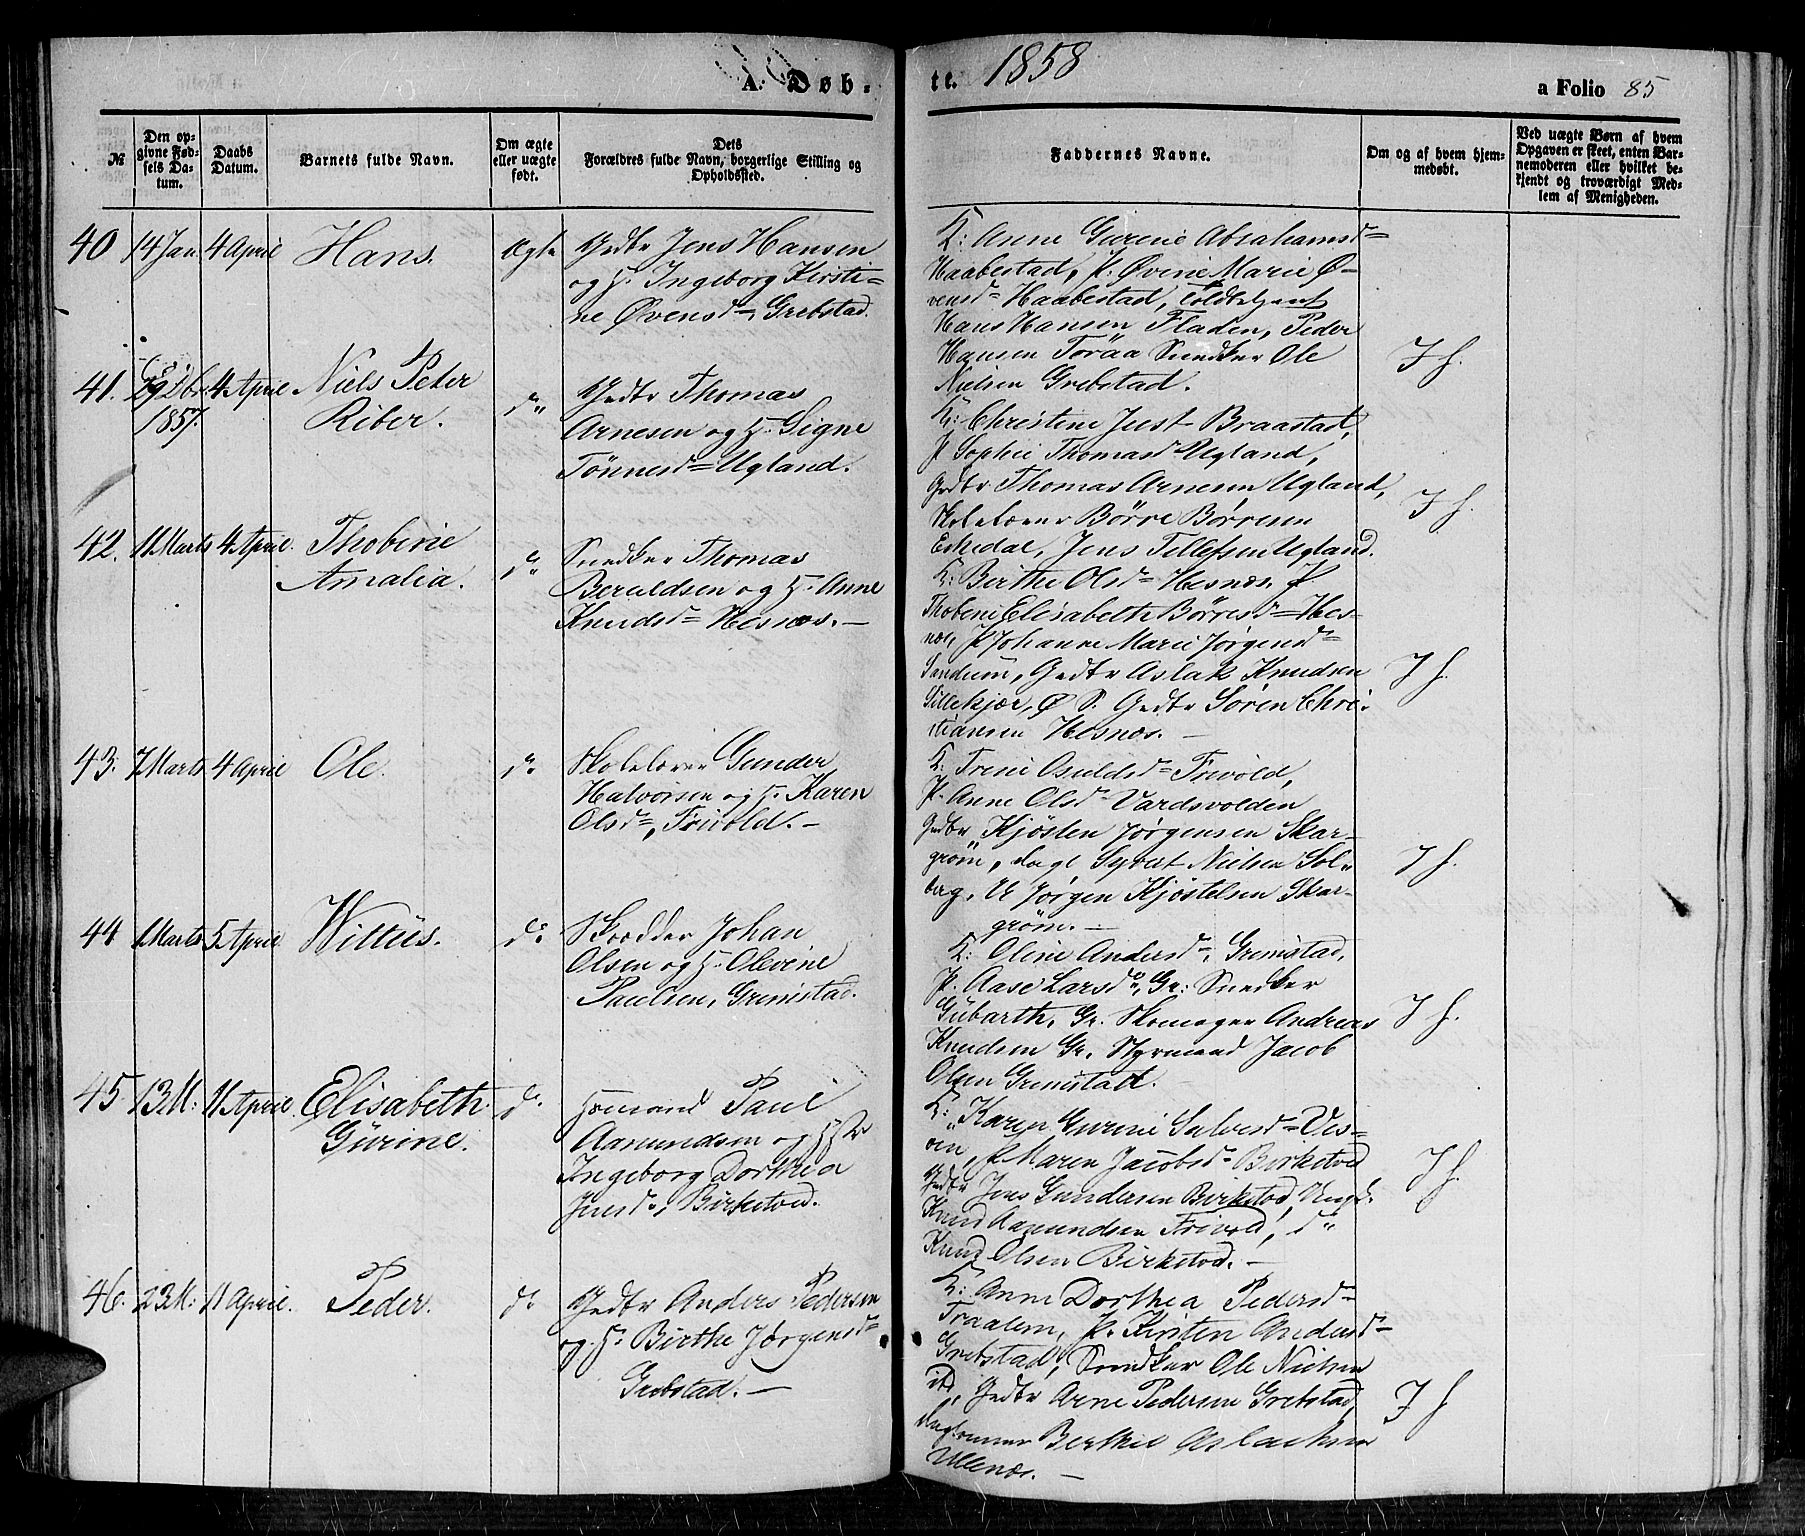 A. Døb-
te. 1858
a Folio 85
№
Den op-
givne Fød-
sels Da-
tum.
Daabs
Datum.
Barnets fulde Navn.
Om ægte
eller uægte
født.
Dets
Forældres fulde Navn, borgerlige Stilling og
Opholdssted.
Faddernes Navne.
Om og af hvem hjem-
medøbt.
Ved uægte Børn af hvem
Opgaven er skeet, enten Bar-
nemoderen eller hvilket be-
kjendt og troværdigt Med-
lem af Menigheden.
40 14 Jan. 4 April Hans. Ægte Gdbr Jens Hansen
og H. Ingeborg Kirsti-
ne Øvensd= Grebstad.
K: Anne Gurene Abrahamsd=
Haabestad, P. Øvine Marie Ø-
vensd= Haabestad, Toldbetjent
Hans Hansen Fladen, Peder
Hansen Toråa Snedker Ole
Nielsen Grebstad.
J f.
41. 29 1857. 4 April Niels Peter
Riber. d" Gdbr Thomas
Arnesen og H. Signe
Tönnesd= Ugland.
K: Christine Just Braastad,
P Sophie Thomasd Ugland,
Gdbr Thomas Arnesen Ugland,
Skolelærer Börre Börresen
Eskedal, Jens Tellefsen Ugland.
J f.
42. 11 Marts 4 April. Thobine
Amalia. d" Snedker Thomas
Beruldsen og H. Anne
Knudsd= Hesnæs. —
K: Birthe Olsd= Hesnæs, P
Thobine Elisabeth Børresd= Hes-
næs, P Johanne Marie Jørgensd=
Sandum, Gdbr Aslak Knudsen
Sillekjær, Ø S. Gdbr Søren Chri-
stiansen Hesnæs. —
J f.
43. 7 Marts 4 April Ole. d° Skolelærer Gunder
Halvorsen og H. Karen
Olsd=, Frivold. —
K: Trine Osuldsd= Frivold,
P. Anne Olsd= Vardsvolden
Gdbr Kjøsten Jørgensen Skar-
grøm, dagl Syvert Nielsen Sol-
berg, U Jørgen Kjøstelsen Skar-
grøm. —
J f.
44 1 Marts 5 April Willüs. d° Skrædder Johan
Olsen og H. Olevine
Paulsen, Grimstad.
K: Oline Andersd=, Grimstad,
P. Aase Larsd=, Gr: Snedker
Gübarth, Gr. Skomager Andreas
Knudsen Gr. Styrmand Jacob
Olsen Grimstad. —
J f.
45 13 M: 11 April. Elisabeth
Gürine. d° Paul
Aanundsen og
Ingeborg Dorthea
Jensd=, Birketved.
K: Karen Gurine Salvesd= Ves-
øen, P. Maren Jacobsd= Birketved
Gdbr Jens Gundersen Birketved, Ungk.
Knud Aanundsen Frivold, d"
Knud Olsen Birketved. —
J f.
46. 23 M: 11 April. Peder. d° Gdbr Anders Pedersen
og H. Birthe Jørgensd=
Grebstad. —
K: Anne Dorthea Pedersd=
Traalem, P. Kirsten Andersd=
Grebstad, Snedker Ole Nielsen
ibd, Gdbr Arne Pedersen Grebstad,
daglønner Berthel Aslaksen
Ullenæs. —
J f